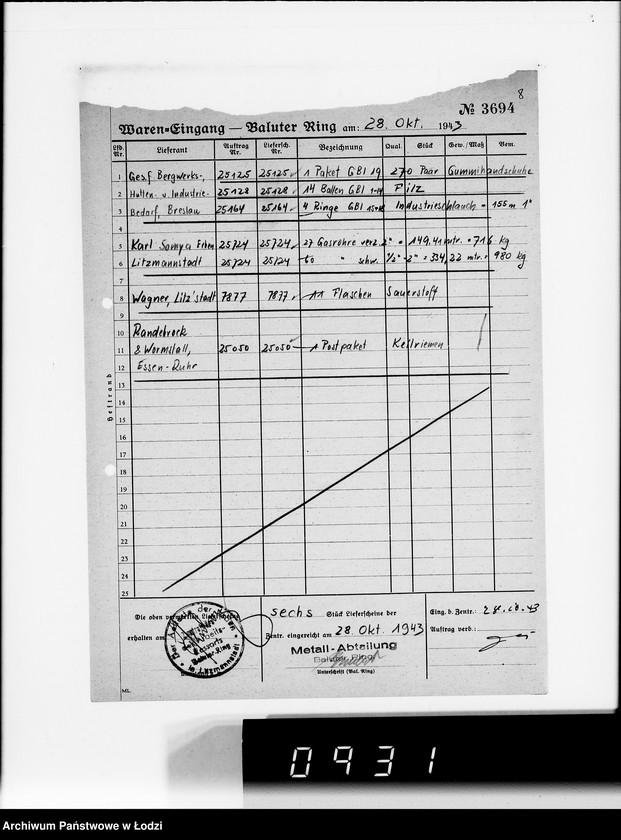 8
№ 3694
Waren-Eingang — Baluter Ring am: 28. Okt. 1943
Lfd. Nr. Lieferant Auftrag Nr. Liefersch. Nr. Bezeichnung Qual. Stück Gew./Maß Bem.
1 Ges.f. Bergwerks-, 25125 25125 1 Paket GBI 19 270 Paar Gummihandschuhe
2 Hütten- u. Industrie- 25128 25128 14 Ballen GBI 1-14 Filz
3 Bedarf, Breslau 25164 25164 4 Ringe GBI 15-18 Industrieschlauch = 155 m 1"
4
5 Karl Somya Erben 25724 25724 27 Gasrohre verz. 2" = 149,41 mtr. = 716 kg
6 Litzmannstadt 25724 25724 60 " schw. 1/2" - 2" = 334,22 mtr. = 980 kg
7
8 Wagner, Litz'stadt 7877 7877 11 Flaschen Sauerstoff
9
10 Randebrock
11 & Wormstall, 25050 25050 1 Postpaket Keilriemen
12 Essen-Ruhr
13
14
15
16
17
18
19
20
21
22
23
24
25
Heftrand
Die oben vermerkten Lieferscheine
erhalten am
sechs Stück Lieferscheine der
Zentr. eingereicht am 28. Okt. 1943
Metall-Abteilung
Baluter Ring
Unterschrift (Bal. Ring)
Eing. b. Zentr.: 28.10.43
Auftrag verb.:
in Litzmannstadt
Baluter-Ring
ML.
0931
Archiwum Państwowe w Łodzi